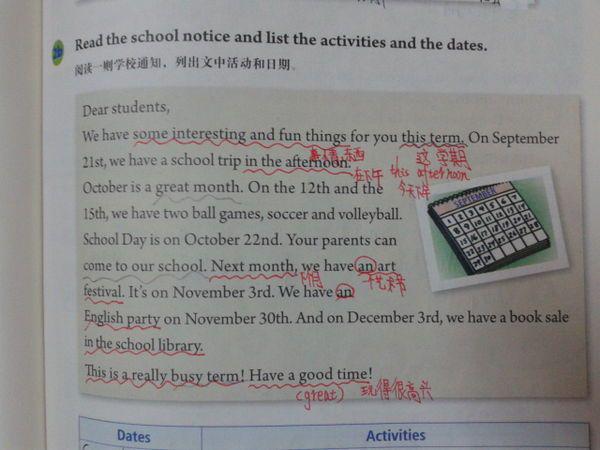 2b
Read the school notice and list the activities and the dates.
阅读一则学校通知，列出文中活动和日期。
Dear students,
We have some interesting and fun things for you this term. On September
事情 东西 这 学期
21st, we have a school trip in the afternoon.
在下午 this afternoon
今天下午
October is a great month. On the 12th and the
15th, we have two ball games, soccer and volleyball.
SEPTEMBER
School Day is on October 22nd. Your parents can
come to our school. Next month, we have an art
festival. It's on November 3rd. We have an
English party on November 30th. And on December 3rd, we have a book sale
in the school library.
This is a really busy term! Have a good time!
(great) 玩得很高兴
Dates Activities